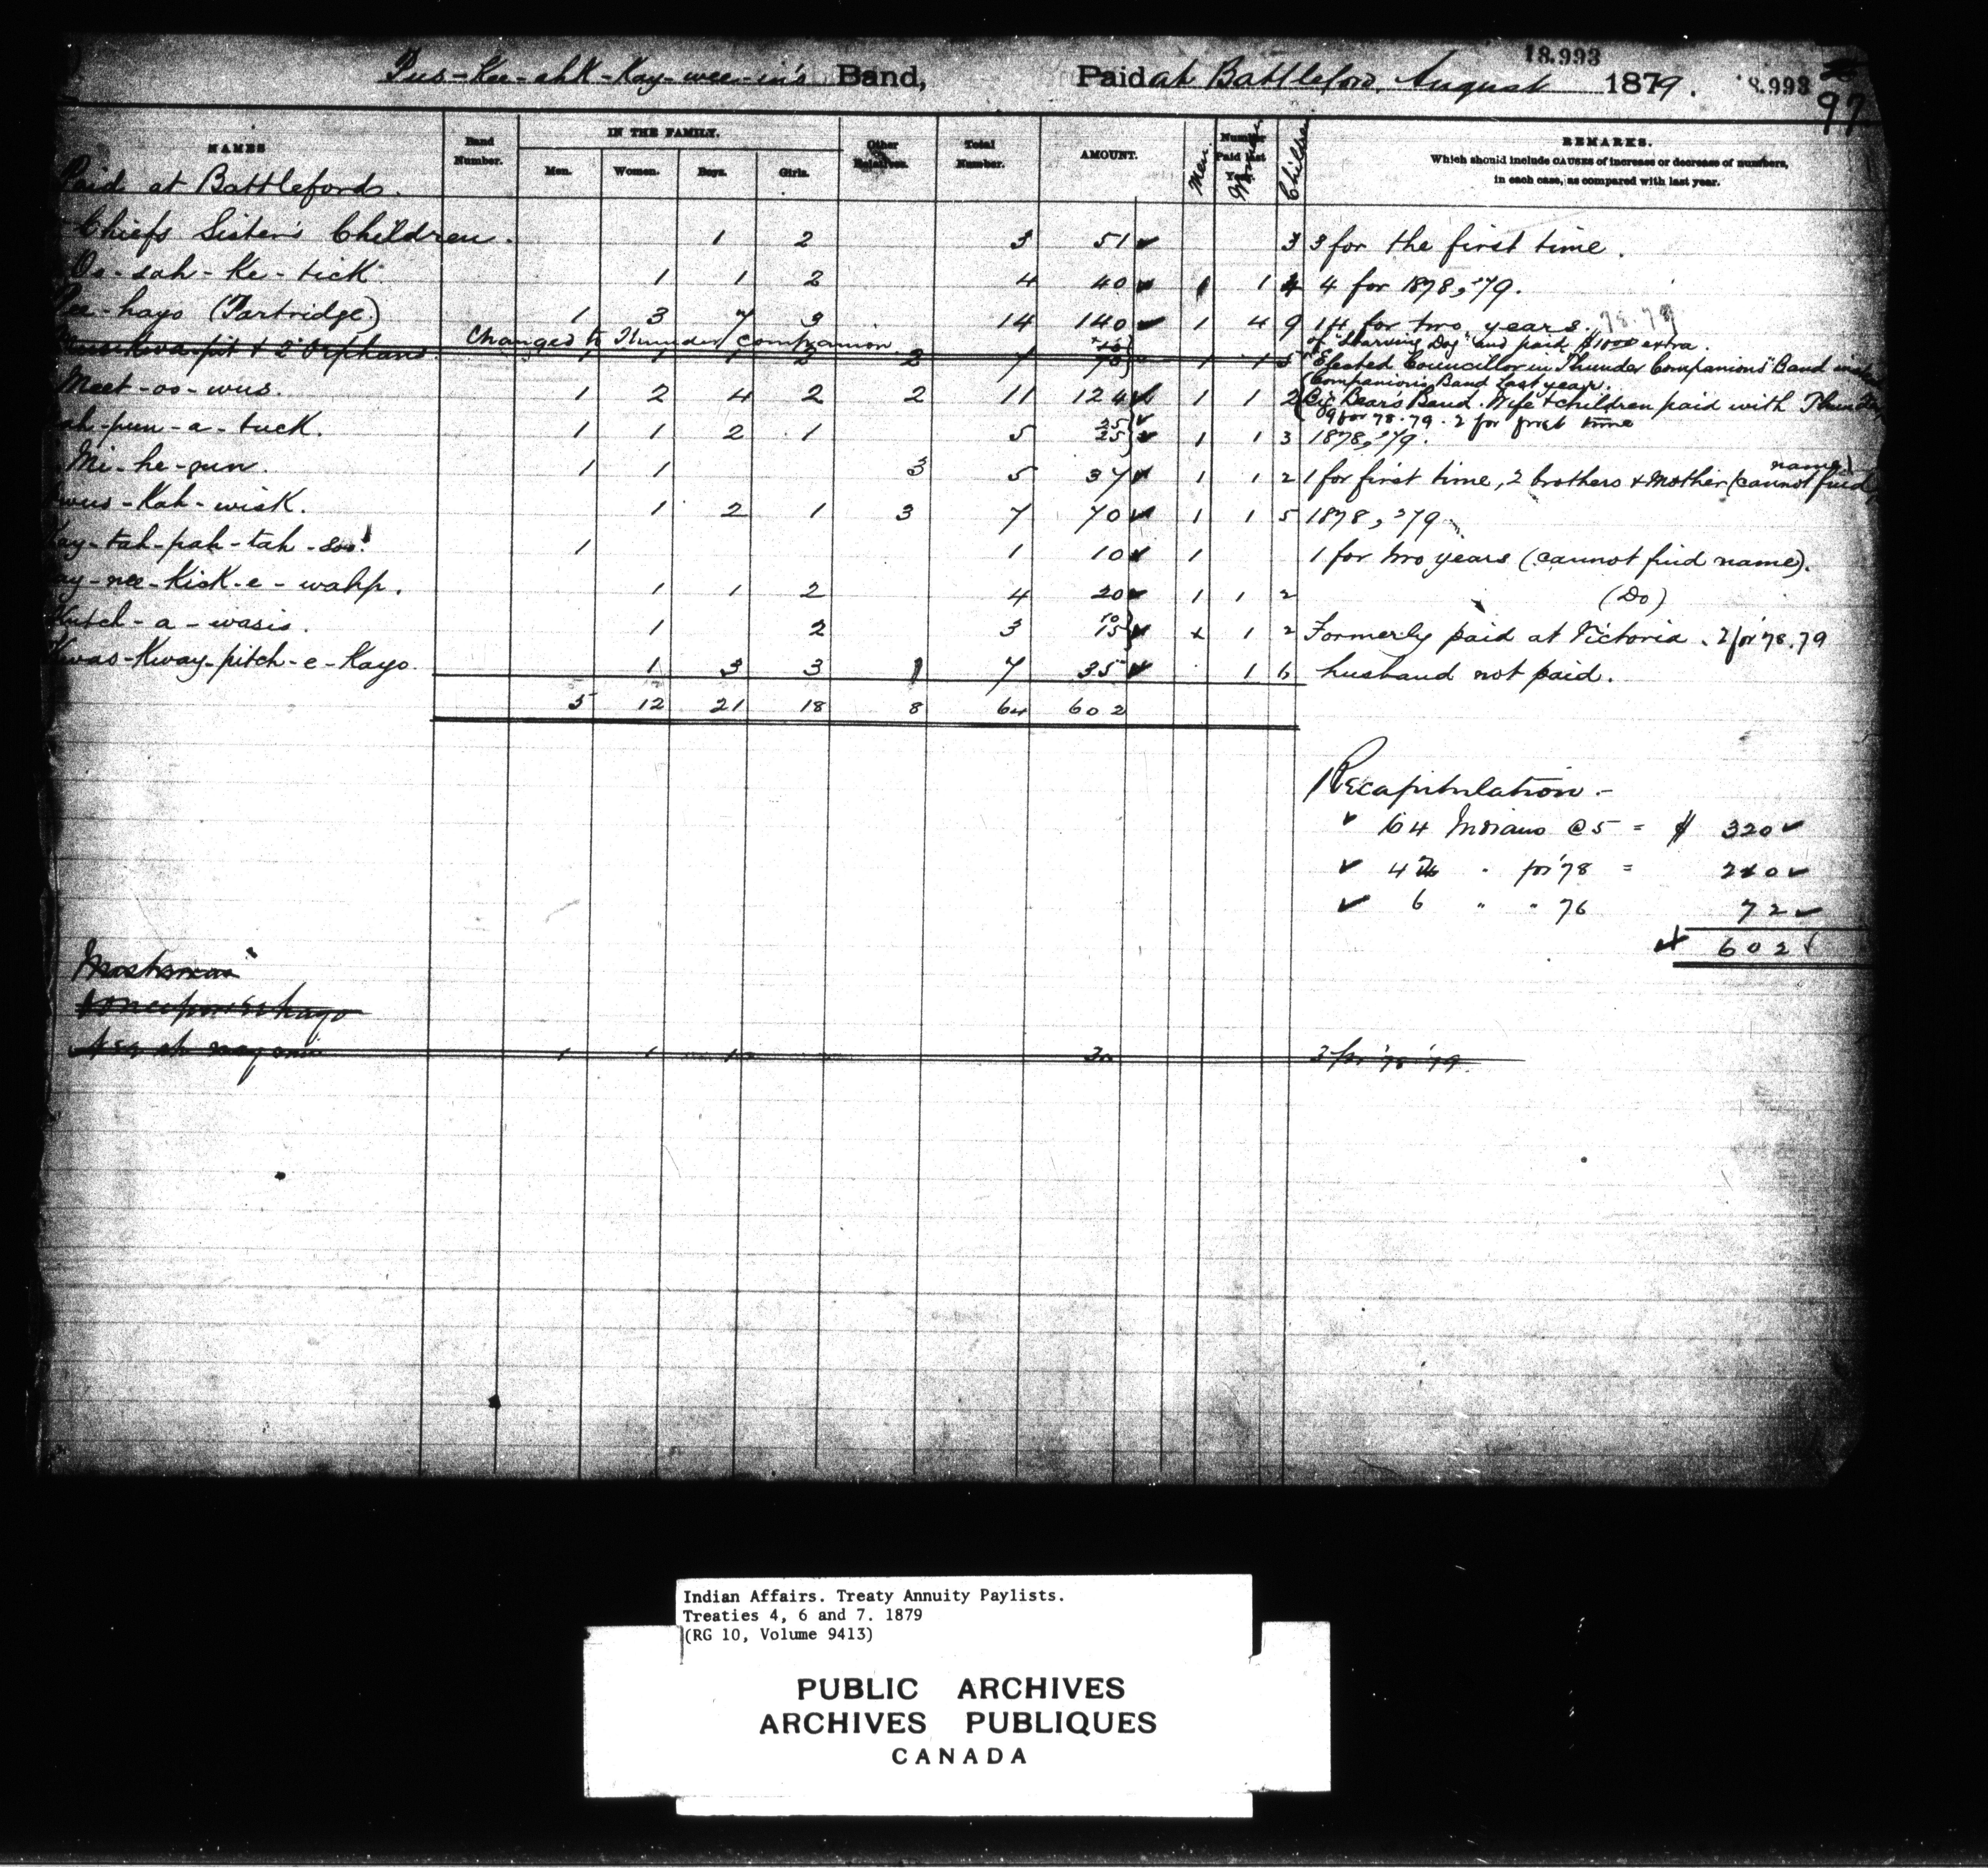 18.993
Pus-Kee-ahk-Kay-wee-in's Band, Paid at Battleford, August 1879. 18.993
97
NAMES Band Number. IN THE FAMILY. Men. Women. Boys. Girls. Other Relatives. Total Number. AMOUNT. Number Paid last Men. Women Children REMARKS.
Which should include CAUSES of increase or decrease of numbers,
in each case, as compared with last year.
Paid at Battleford.
Chiefs Sister's Children. 1 2 3 51 3 3 for the first time.
Oo-sah-Ke-tick 1 1 2 4 40 1 1 4 4 for 1878, '79.
Pee-hayo (Partridge) 1 3 7 3 14 140 1 4 9 14 for two years. 78.79
Changed to Thunder Companion
& 2 Orphans 1 1 1 2 2 7 70 1 1 5
of "Starving Dog" and paid $10.00 extra.
Elected Councillor in Thunder Companions' Band
Companion's Band last year.
Meet-oo-wus. 1 2 4 2 2 11 124 1 1 2 Big Bear's Band. Wife & children paid with Thunder
9 for 78.79. 2 for first time
ah-pun-a-tuck. 1 1 2 1 5 25 25 1 1 3 1878, '79.
Mi-he-gun. 1 1 3 5 37 1 1 2 1 for first time, 2 brothers & Mother (cannot find name)
wus-Kah-wisk. 1 2 1 3 7 70 1 1 5 1878, '79
Kay-tah-pah-tah-soo 1 1 10 1 1 for two years (cannot find name).
ay-nee-Kisk-e-wahp. 1 1 2 4 20 1 1 2 (Do)
Kutch-a-wasis. 1 2 3 10 15 x 1 2 Formerly paid at Victoria. 2 for 78.79
Kwas-Kway-pitch-e-Kayo. 1 3 3 1 7 35 1 6 husband not paid.
5 12 21 18 8 64 602
Recapitulation.-
64 Indians @ 5 = $ 320
42 " for '78 = 210
6 " " 76 72
602
1 1 1 30 3 for '78 '79.
Indian Affairs. Treaty Annuity Paylists.
Treaties 4, 6 and 7. 1879
(RG 10, Volume 9413)
PUBLIC ARCHIVES
ARCHIVES PUBLIQUES
CANADA